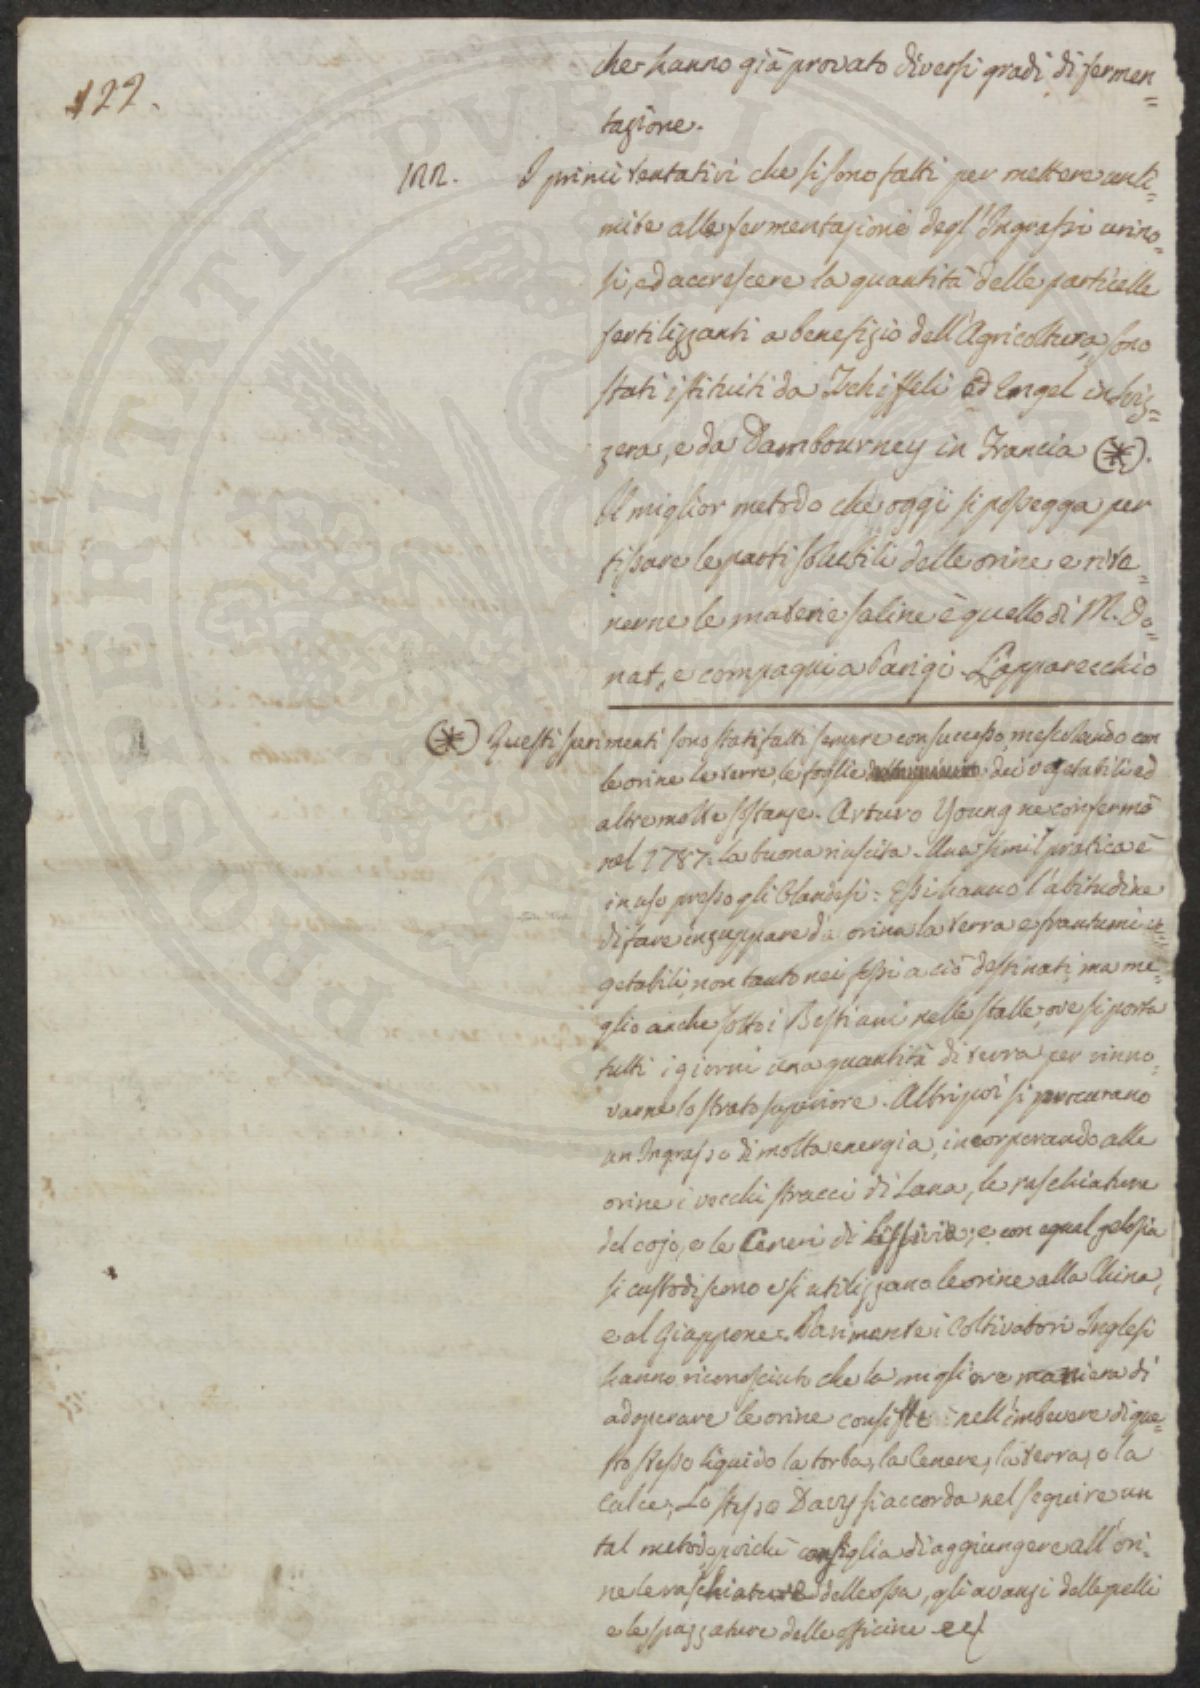 122.
che hanno già provato diversi gradi di fermen=
tazione.
122. I primi tentativi che si sono fatti per mettere un li=
mite alle fermentazioni degl'Ingrassi urino=
si, ed accrescere la quantità delle particelle
fertilizzanti a benefizio dell'Agricoltura, sono
stati istituiti da Tschiffeli ed Engel in Sviz=
zera, e da Dambourney in Francia (*).
Il miglior metodo che oggi si possegga per
fissare le parti solubili delle orine e rite=
nerne le materie saline è quello di M. Do=
nat, e compagni a Parigi. L'apparecchio
(*) Questi sperimenti sono stati fatti sempre con successo, mescolando con
le orine le terre, le foglie dei vegetabili ed
altre molte sostanze. Arturo Young ne confermò
nel 1787. la buona riuscita. Una simil pratica è
in uso presso gli Olandesi: Essi hanno l'abitudine
di fare inzuppare da orina la terra e frantumi ve
getabili, non tanto nei fossi a ciò destinati, ma me=
glio anche sotto i Bestiami nelle stalle, ove si porta
tutti i giorni una quantità di terra per rinno=
varne lo strato superiore. Altri poi si procurano
un Ingrasso di molta energia, incorporando alle
orine i vecchi stracci di Lana, le raschiature
del cojo, e le Ceneri di Lissivia; e con egual gelosia
si custodiscono e si utilizzano le orine alla China,
e al Giappone. Parimente i Coltivatori Inglesi
hanno riconosciuto che la migliore maniera di
adoperare le orine consiste nell'imbevere di que=
sto stesso liquido la torba, la Cenere, la terra, o la
Calce; Lo stesso Davy si accorda nel seguire un
tal metodo, poichè consiglia di aggiungere all'ori=
ne le raschiature delle ossa, gli avanzi delle pelli
e le spazzature delle officine ec
PROSPERITATI PVBLICAE